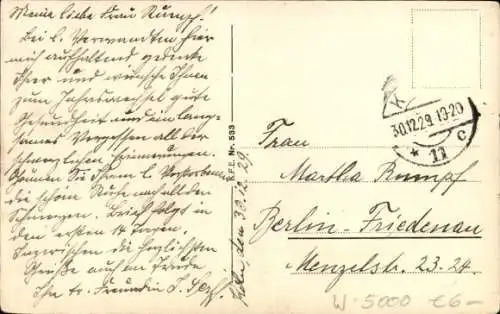 Meine liebe Frau Rumpf!
Bei l. Verwandten hier
mich aufhaltend gedenke
Ihrer und wünsche Ihnen
zum Jahreswechsel gute
Gesundheit und ein lang-
sames Vergessen all der
schmerzlichen Erinnerungen.
Gönnen Sie Ihrem l. Verstorbenen
die schöne Ruhe nach all den
Schmerzen. Brief folgt in
den ersten 14 Tagen.
Inzwischen die herzlichsten
Grüße auch an Trude
Ihre tr. Freundin L.
den 30.12.29
R.P.E. Nr. 593
30.12.29.19-20
* 11 c
Frau
Martha Rumpf
Berlin-Friedenau
Menzelstr. 23-24.
W-5000 €6-